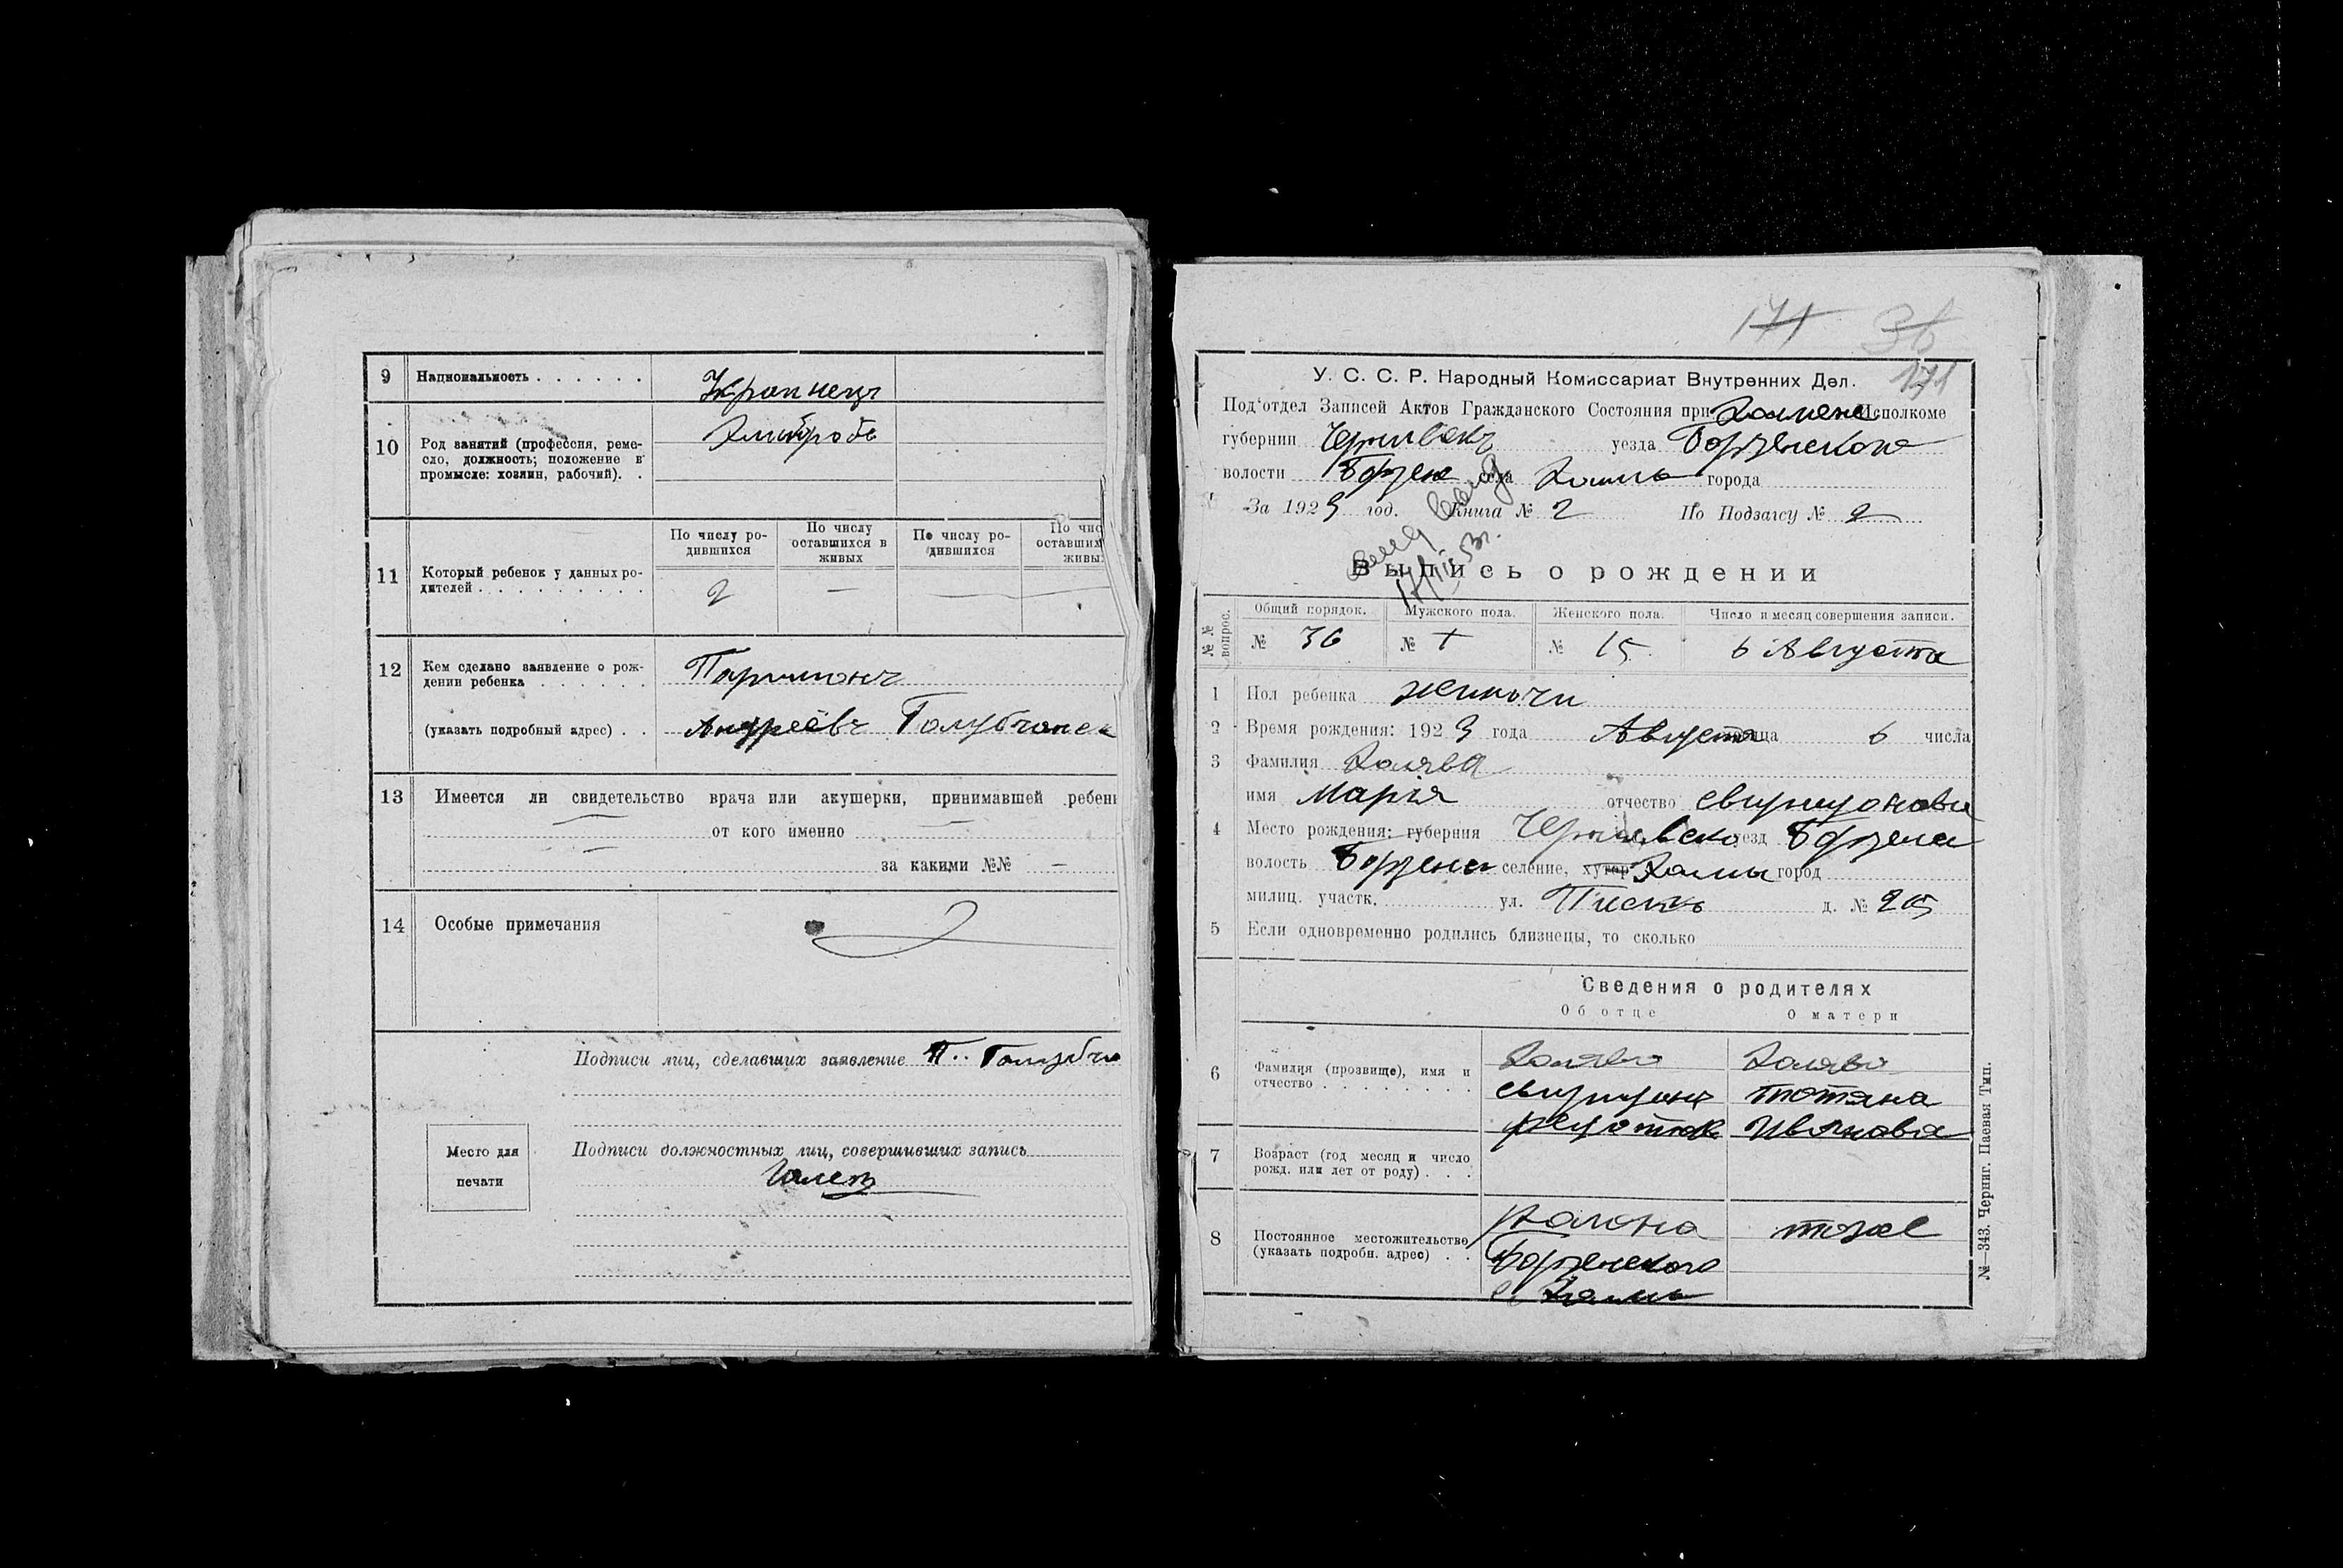 9 Национальность . . . . . .
Украинец
10 Род занятий (профессия, реме-
сло, должность; положение в
промысле: хозяин, рабочий). .
Хлибороб
11 Который ребенок у данных ро-
дителей . . . . . . . . .
По числу ро-
дившихся
По числу
оставшихся в
живых
По числу ро-
дившихся
По чис
оставших
живы
2 —
12 Кем сделано заявление о рож-
дении ребенка . . . . . .
(указать подробный адрес) . .
Паримонъ
Андреевъ
13 Имеется ли свидетельство врача или акушерки, принимавшей ребен
от кого именно
за какими №№ —
14 Особые примечания
Подписи лиц, сделавших заявление П. Голубчи
Место для
печати
Подписи должностных лиц, совершивших запись
171 36
171
У. С. С. Р. Народный Комиссариат Внутренних Дел.
Под'отдел Записей Актов Гражданского Состояния при Исполкоме
губернии уезда Борзенского
волости Борзен села города
За 1923 год. Книга № 2 По Подзагсу № 2
Выпись о рождении
№№ вопрос.
Общий порядок. Мужского пола. Женского пола. Число и месяц совершения записи.
№ 36 № + № 15 6 Августа
1 Пол ребенка жиночи
2 Время рождения: 1923 года Августа месяца 6 числа
3 Фамилия Холява
имя Марія отчество
4 Место рождения: губерния уезд Борзен
волость Борзени селение, хутор город
милиц. участк. ул. д. № 25
5 Если одновременно родились близнецы, то сколько
Сведения о родителях
Об отце О матери
6 Фамилия (прозвище), имя и
отчество . . . . . . . .
Холява Холява
Тотяна
Иванова
7 Возраст (год месяц и число
рожд. или лет от роду) . . .
8 Постоянное местожительство
(указать подробн. адрес) . .
тоже
Борзенского
№—343. Черниг. Паевая Тип.